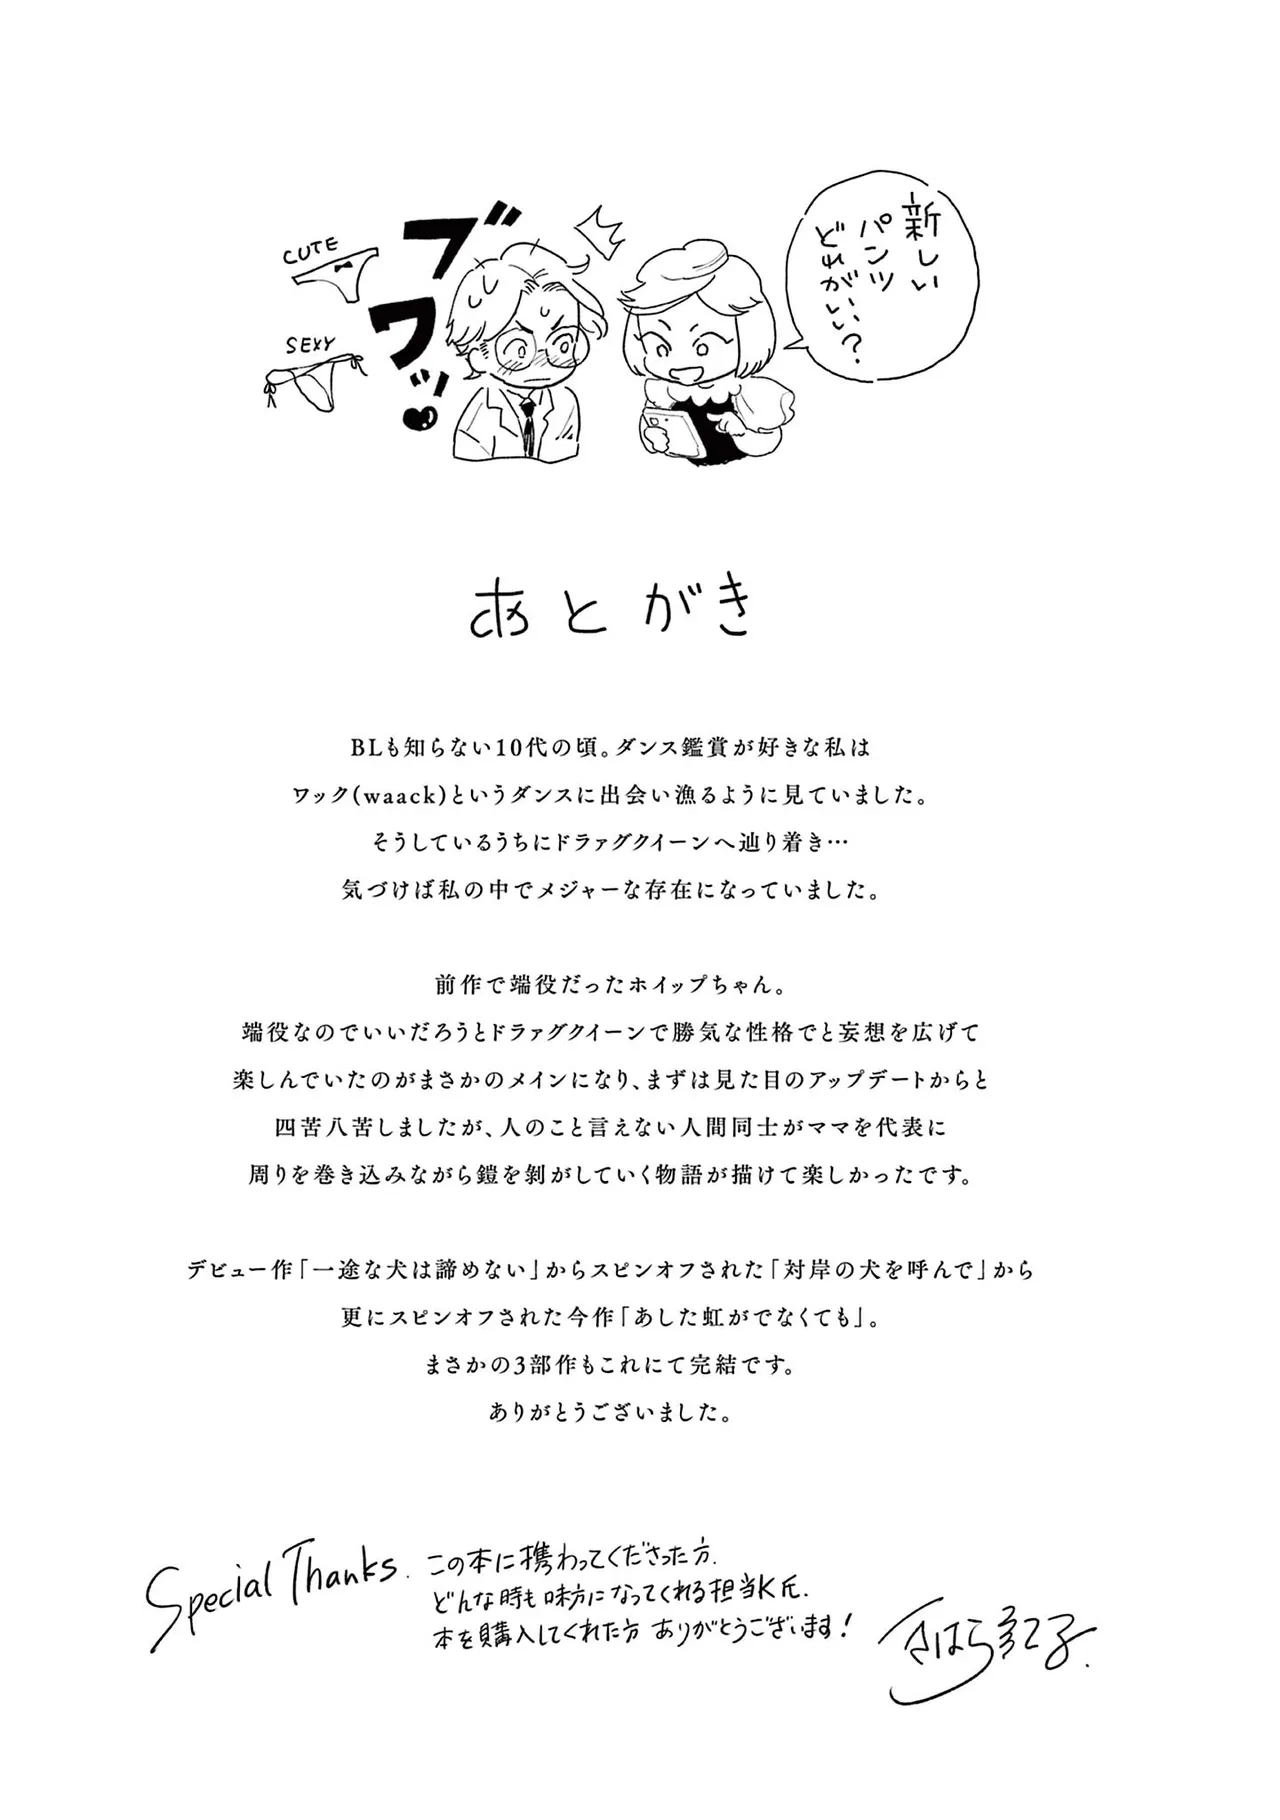 新しい
パンツ
どれがいい?
ブワッ
CUTE
SEXY
あとがき
BLも知らない10代の頃。ダンス鑑賞が好きな私は
ワック(waack)というダンスに出会い漁るように見ていました。
そうしているうちにドラァグクイーンへ辿り着き…
気づけば私の中でメジャーな存在になっていました。
前作で端役だったホイップちゃん。
端役なのでいいだろうとドラァグクイーンで勝気な性格でと妄想を広げて
楽しんでいたのがまさかのメインになり、まずは見た目のアップデートからと
四苦八苦しましたが、人のこと言えない人間同士がママを代表に
周りを巻き込みながら鎧を剥がしていく物語が描けて楽しかったです。
デビュー作「一途な犬は諦めない」からスピンオフされた「対岸の犬を呼んで」から
更にスピンオフされた今作「あした虹がでなくても」。
まさかの3部作もこれにて完結です。
ありがとうございました。
Special Thanks.
この本に携わってくださった方.
どんな時も味方になってくれる担当K氏.
本を購入してくれた方 ありがとうございます!
さはら